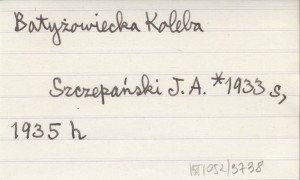 Batyżowiecka Koleba
Szczepański J. A. *1933 s,
1935 h
IST/052/3738